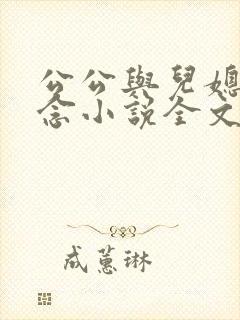 公公與兒媳
念小說全文
成蕙琳